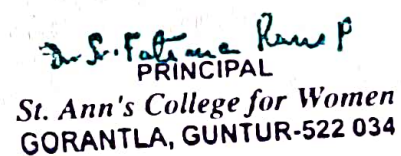 Dr Sr. Fatima Rani P
PRINCIPAL
St. Ann's College for Women
GORANTLA, GUNTUR-522 034